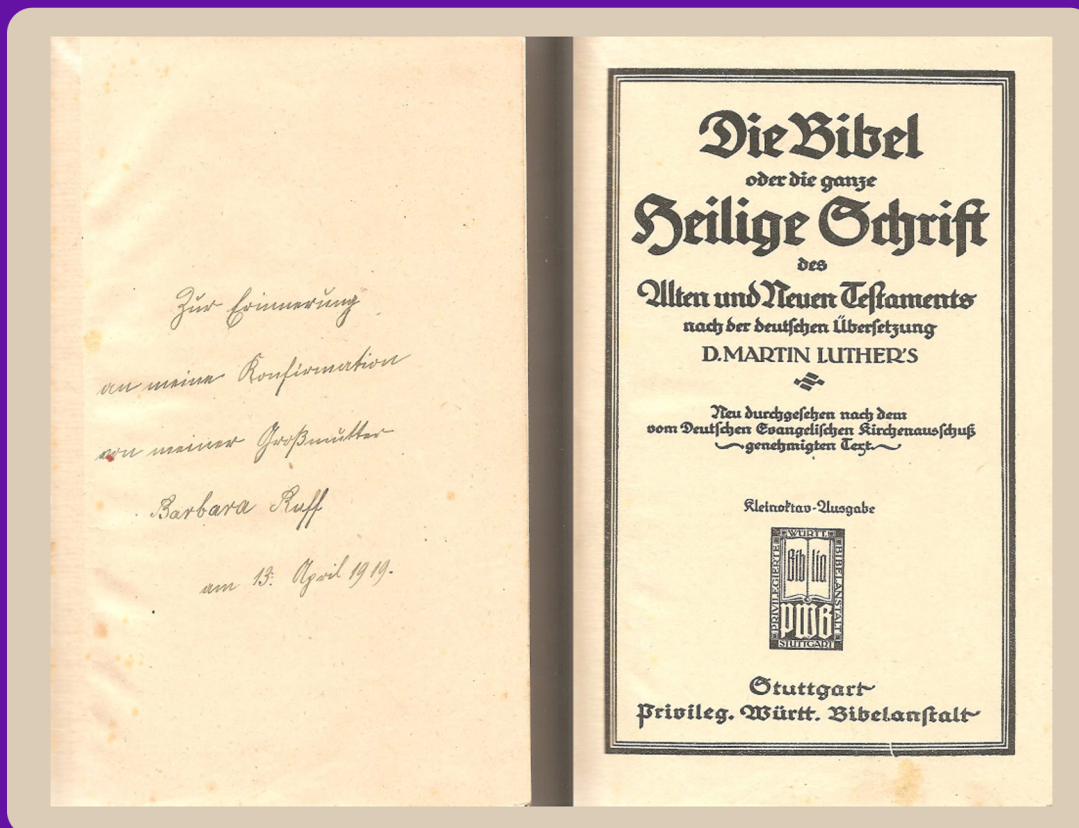 Zur Erinnerung
an meine Konfirmation
von meiner Großmutter
Barbara Ruff
am 13. April 1919.
Die Bibel
oder die ganze
Heilige Schrift
des
Alten und Neuen Testaments
nach der deutschen Übersetzung
D. MARTIN LUTHER'S
Neu durchgesehen nach dem
vom Deutschen Evangelischen Kirchenausschuß
genehmigten Text
Kleinoktav-Ausgabe
PRIVILEGIERTE
WÜRTT.
BIBELANSTALT
STUTTGART
Biblia
PWB
Stuttgart
Privileg. Württ. Bibelanstalt